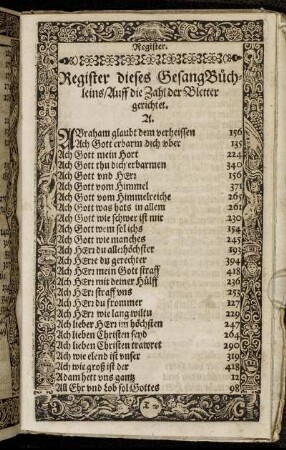 Register.
Register dieses GesangBüch-
leins/Auff die Zahl der Bletter
gerichtet.
A.
ABraham glaubt dem verheissen 156
Ach Gott erbarm dich vber 135
Ach Gott mein Hort 224
Ach Gott thu dich erbarmen 340
Ach Gott vnd HErr 156
Ach Gott vom Himmel 371
Ach Gott vom Himmelreiche 265
Ach Gott was hats in allem 261
Ach Gott wie schwer ist mir 230
Ach Gott wem sol ichs 154
Ach Gott wie manches 245
Ach HErr du allerhöchster 193
Ach HErre du gerechter 394
Ach HErr mein Gott straff 418
Ach HErr mit deiner Hülff 236
Ach HErr straff vns 257
Ach HErr du frommer 127
Ach HErr wie lang wiltu 229
Ach lieber HErr im höchsten 247
Ach lieben Christen seyd 264
Ach lieben Christen trawret 290
Ach wie elend ist vnser 319
Ach/ wie groß ist der 428
Adam hett vns gantz 12
All Ehr vnd Lob sol Gottes 98